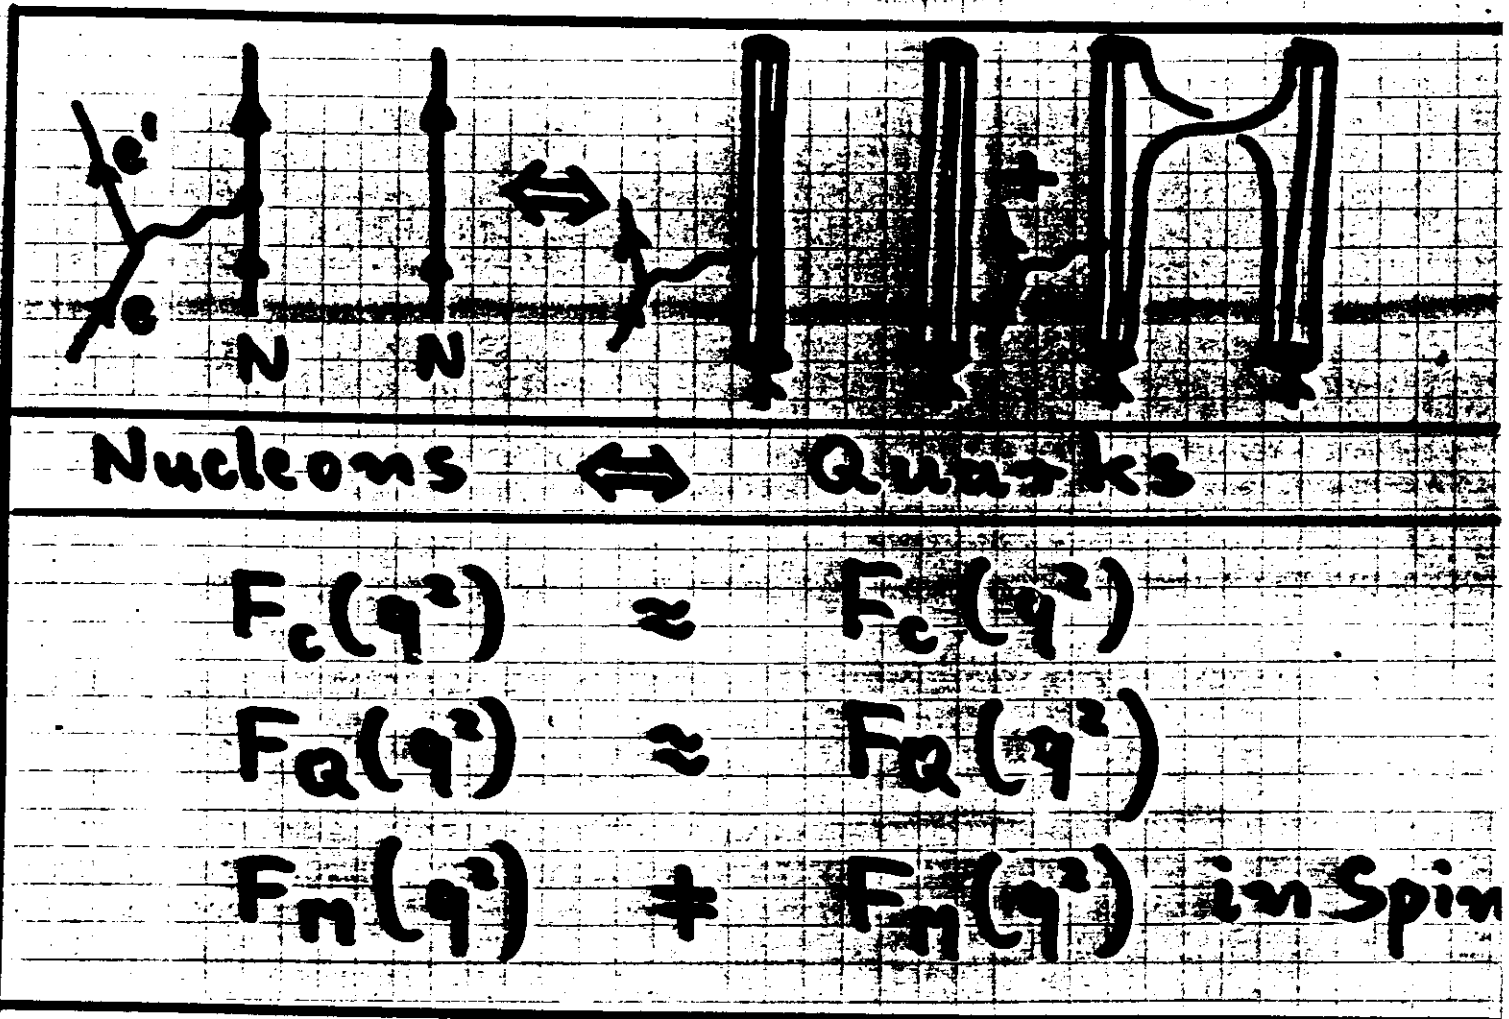 e'
e
N N
⇔
+
Nucleons ⇔ Quarks
F_c(q²) ≈ F_c(q²)
F_Q(q²) ≈ F_Q(q²)
F_m(q²) ≠ F_m(q²) in Spin